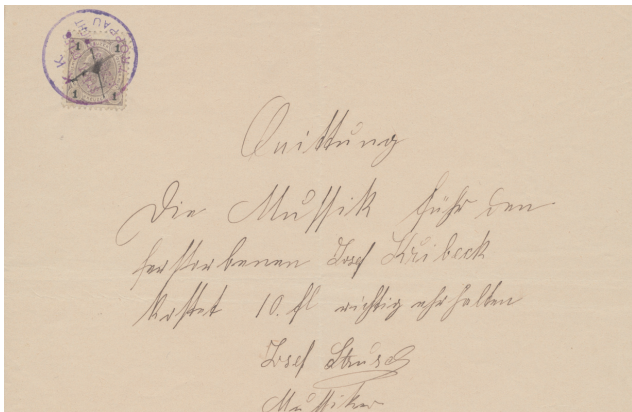 K. K. 
1 1
1 1
Quittung
Die Mussik führ den
ferstorbenen Josef Kribeck
kostet 10. fl richtig erhalten
Josef
Mussiker